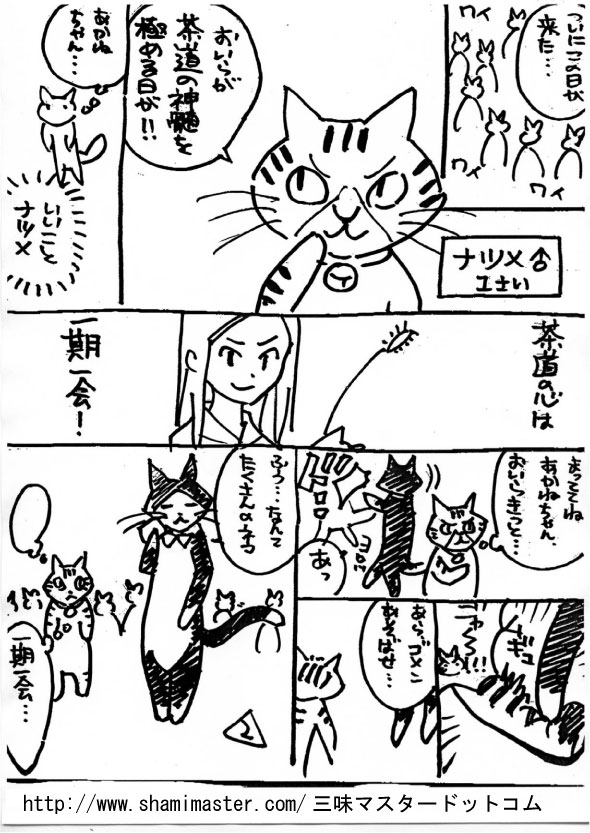 ついにこの日が
来た…
ワイ
ワイ
ワイ
おいらが
茶道の神髄を
極める日が!!
ナツメ♂
エさい
あかね
ちゃん…
いいこと
ナツメ
茶道の心は
一期一会!
まっててね
あかねちゃん、
おいらきっと…
ドドドドド
あっ
ギュ
ニャ〜〜!!
あら、ゴメン
あそばせ…
ふう…なんて
たくさんのネコ
一期一会…
2
http://www.shamimaster.com/三味マスタードットコム